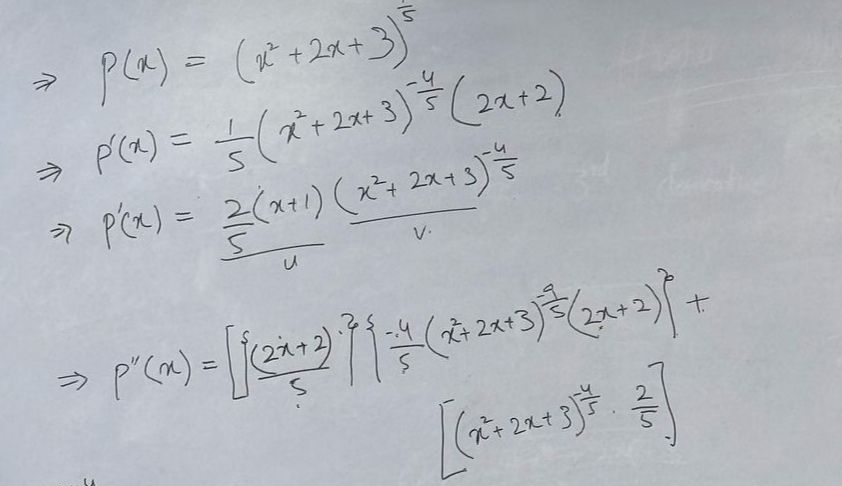 ⇒ p(x) = (x² + 2x + 3)^(1/5)
⇒ p'(x) = 1/5 (x² + 2x + 3)^(-4/5) (2x+2)
⇒ p'(x) = 2/5 (x+1) (x² + 2x + 3)^(-4/5)
u v.
⇒ p''(x) = [{(2x+2)/5} {-4/5 (x² + 2x + 3)^(-9/5) (2x+2)}] +
[(x² + 2x + 3)^(-4/5) · 2/5]